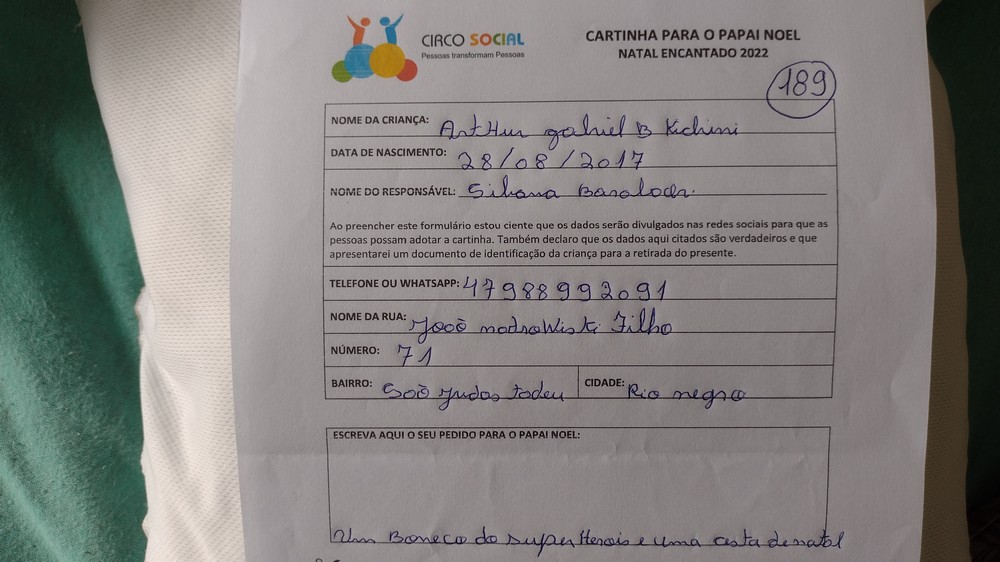 CIRCO SOCIAL
Pessoas transformam Pessoas
CARTINHA PARA O PAPAI NOEL
NATAL ENCANTADO 2022
189
NOME DA CRIANÇA: ArtHur gabriel B Kichini
DATA DE NASCIMENTO: 28/08/2017
NOME DO RESPONSÁVEL: Silvana
Ao preencher este formulário estou ciente que os dados serão divulgados nas redes sociais para que as
pessoas possam adotar a cartinha. Também declaro que os dados aqui citados são verdadeiros e que
apresentarei um documento de identificação da criança para a retirada do presente.
TELEFONE OU WHATSAPP: 47988992091
NOME DA RUA: Filho
NÚMERO: 71
BAIRRO: Soõ Judas tadeu CIDADE: Rio negro
ESCREVA AQUI O SEU PEDIDO PARA O PAPAI NOEL:
Um Boneco do super Herois e uma cesta de natal